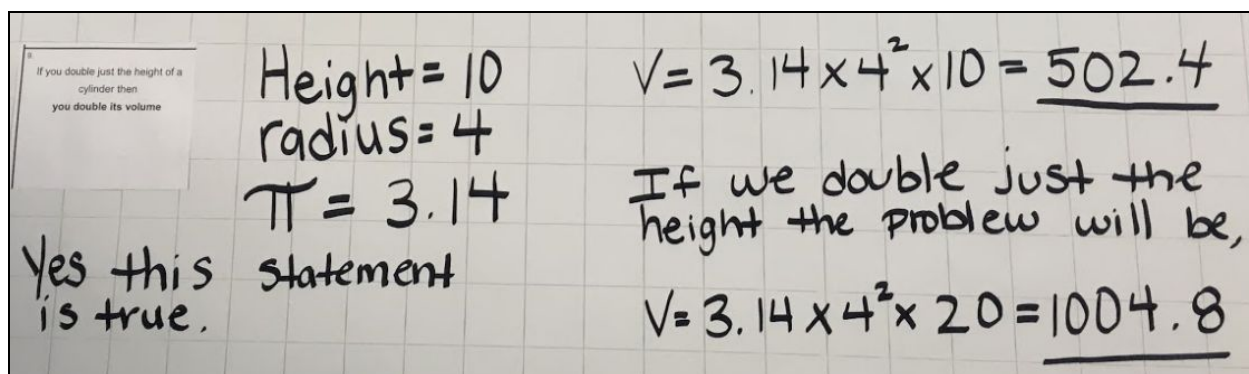 9.
If you double just the height of a
cylinder then
you double its volume
Height = 10
radius = 4
π = 3.14
Yes this statement
is true.
V = 3.14 x 4² x 10 = 502.4
If we double just the
height the problew will be,
V = 3.14 x 4² x 20 = 1004.8